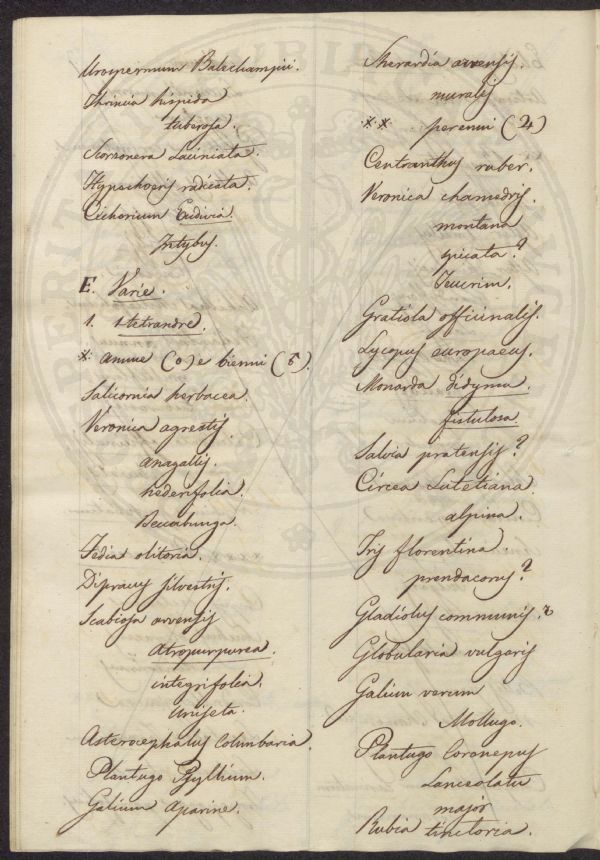 Urospermum Dalechampii.
Thrincia hispida
tuberosa.
Scorzonera Laciniata.
Hypochoeris radicata.
Cichorium Endivia.
Intybus.
E. Varie.
1. 1tetrandre.
* annue (o) e bienni (5).
Salicornia herbacea.
Veronica agrestis.
anagallis.
hederifolia.
Beccabunga.
Fedia olitoria.
Dipsacus silvestris.
Scabiosa arvensis
atropurpurea.
integrifolia.
Uniseta.
Asterocephalus Columbaria.
Plantago Psyllium.
Galium aparine.
Sherardia arvensis.
muralis
** perenni (24)
Centranthus ruber.
Veronica chamedris.
montana
spicata?
Teucrim.
Gratiola officinalis.
Lycopus europaeus.
Monarda didyma.
fistulosa
Salvia pratensis?
Circea Lutetiana.
alpina.
Iris florentina
pseudacorus?
Gladiolus communis.?
Globularia vulgaris
Galium verum
Mollugo.
Plantago Coronopus
Lanceolata
major
Rubia tinctoria.